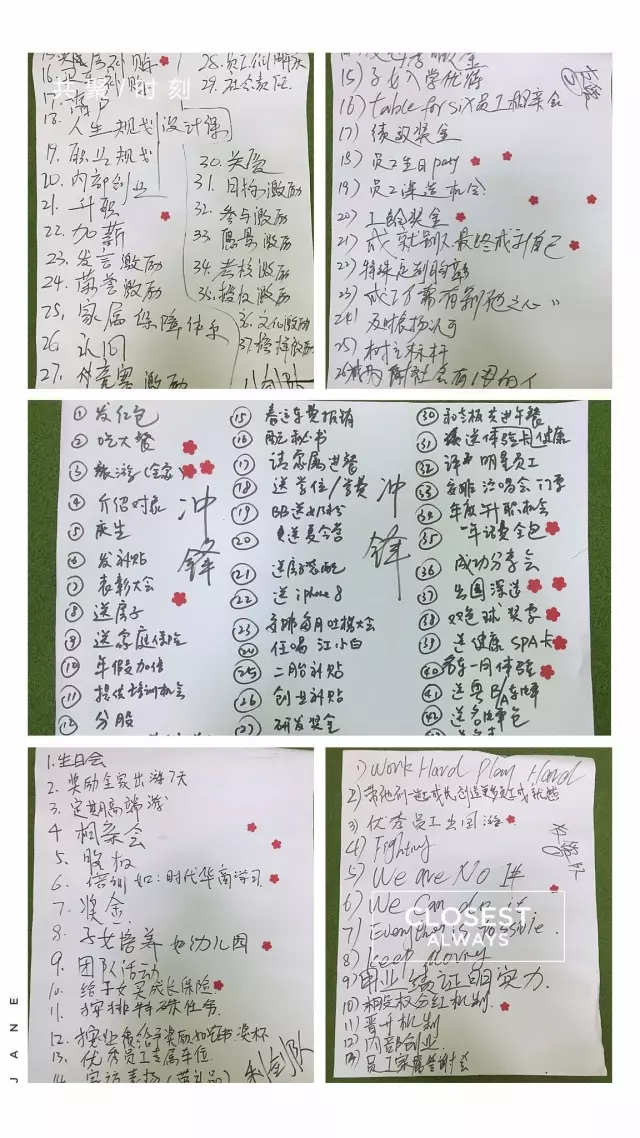 共聚/时刻
18. 人生规划设计课
19. 职业规划
20. 内部创业
21. 升职
22. 加薪
23. 发言激励
24. 荣誉激励
25. 家属保障体系
26
27. 激励
28. 员工
29. 社会责任
30. 关爱
31. 目标激励
32. 参与激励
33. 愿景激励
34. 考核激励
35. 授权激励
36. 文化激励
37. 榜样激励
15) 子女入学优待
16) table for six 员工相亲会
17) 绩效奖金
18) 员工生日party
19) 员工深造机会
20) 工龄奖金
21) 成就别人最终成就自己
22) 特殊
23)
24) 及时表扬认可
25) 树立标杆
① 发红包
② 吃大餐
③ 旅游(全家)
④ 介绍对象
⑤ 庆生
⑥ 发补贴
⑦ 表彰大会
⑧ 送房子
⑨ 送家庭保险
⑩ 年假加倍
⑪ 提供培训机会
⑫ 分股
冲锋
⑮ 春运车费报销
⑯ 配秘书
⑰ 请家属进餐
⑱ 送学位/学费
⑲ BB送奶粉
⑳ 送夏令营
㉑ 送房
㉒ 送iphone 8
㉓ 每月吐槽大会
㉔ 任喝江小白
㉕ 二胎补贴
㉖ 创业补贴
㉗ 研发奖金
冲锋
㉚ 和老板共进午餐
㉛ 送体验卡健康
㉜ 评选明星员工
㉝ 安排演唱会门票
㉞ 年度升职机会
㉟ 一年话费全包
㊱ 成功分享会
㊲ 出国深造
㊳ 双色球奖券
㊴ 送健康SPA卡
㊵ 一月体验
㊶ 送粤B/A车牌
㊷ 送名牌包
1. 生日会
2. 奖励全家出游7天
3. 定期高端游
4 相亲会
5. 股权
6. 培训如:时代华商学习
7. 奖金
8. 子女培养 如幼儿园
9. 团队活动
10. 给子女买成长保险
11. 安排特殊任务
12. 奖杯
13. 优秀员工专属车位
14. 家访表扬(带礼品)
1) Work Hard Play Hard
3) 优秀员工出国游
4) Fighting
5) We are No 1#
6) We Can do it
7) Everything is possible.
8) keep moving
9) 用业绩证明实力
10) 期股权分红机制
11) 晋升机制
12) 内部创业
13) 员工家属答谢会
CLOSEST
ALWAYS
JANE